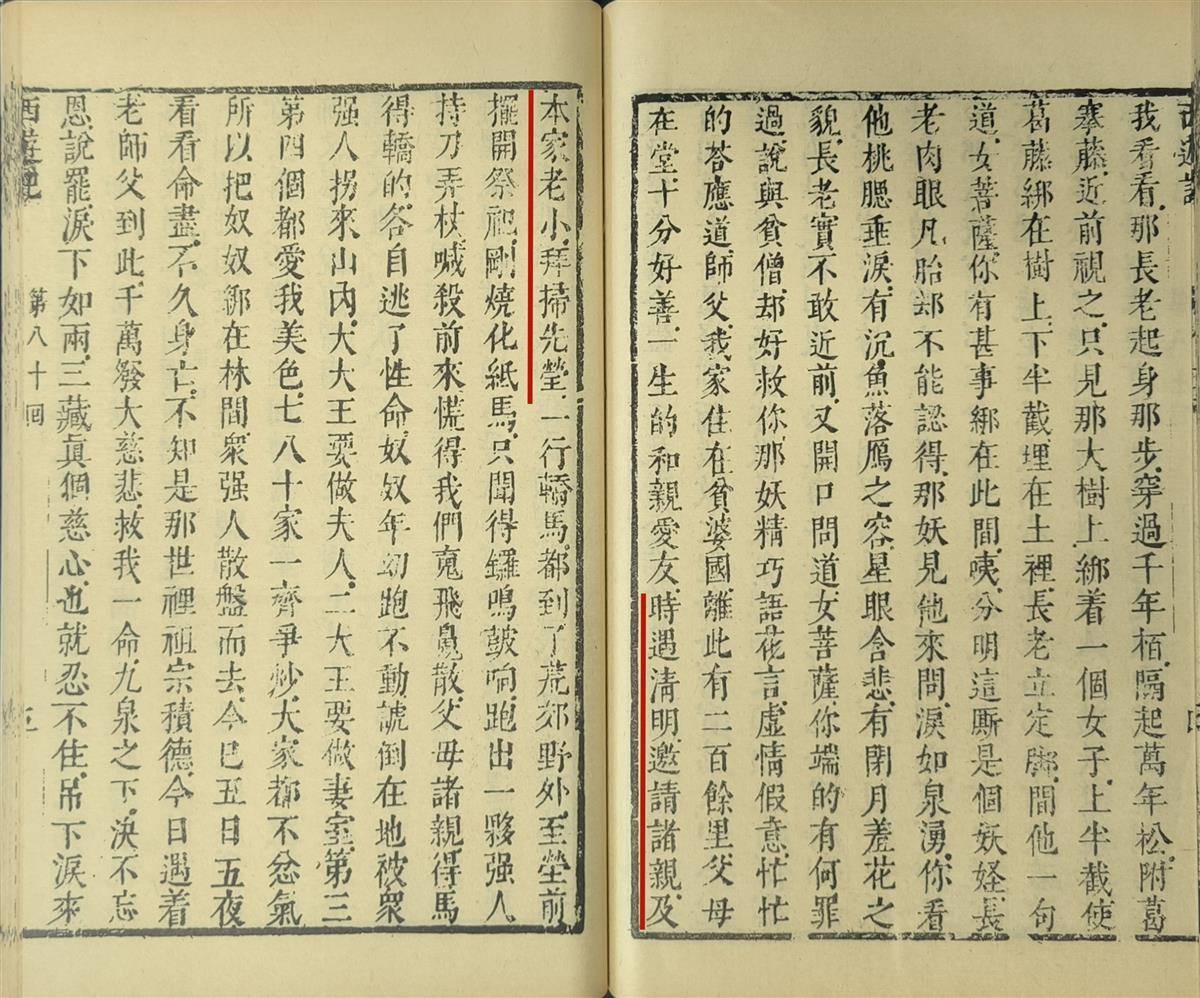 我看看那長老起身那步穿過千年栢隔起萬年松附葛
攀藤近前視之只見那大樹上綁着一個女子上半截使
葛藤綁在樹上下半截埋在土裡長老立定脚問他一句
道女菩薩你有甚事綁在此間咦分明這厮是個妖怪長
老肉眼凡胎却不能認得那妖見他來問淚如泉湧你看
他桃腮垂淚有沉魚落鴈之容星眼含悲有閉月羞花之
貌長老實不敢近前又開口問道女菩薩你端的有何罪
過說與貧僧却好救你那妖精巧語花言虛情假意忙忙
的荅應道師父我家住在貧婆國離此有二百餘里父母
在堂十分好善一生的和親愛友時遇清明邀請諸親及
本家老小拜掃先塋一行轎馬都到了荒郊野外至塋前
擺開祭祀剛燒化紙馬只聞得鑼鳴鼓响跑出一夥强人
持刀弄杖喊殺前來慌得我們䰟飛魄散父母諸親得馬
得轎的各自逃了性命奴奴年幼跑不動諕倒在地被衆
强人拐來山內大大王要做夫人二大王要做妻室第三
第四個都愛我美色七八十家一齊爭炒大家都不忿氣
所以把奴奴綁在林間衆强人散盤而去今已五日五夜
看看命盡不久身亡不知是那世裡祖宗積德今日遇着
老師父到此千萬發大慈悲救我一命九泉之下決不忘
恩說罷淚下如雨三藏真個慈心也就忍不住吊下淚來
西遊記
第八十回